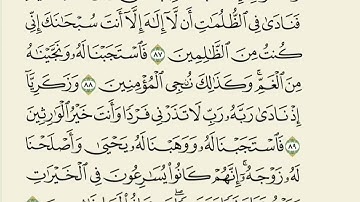 فَنَادَىٰ فِي ٱلظُّلُمَٰتِ أَن لَّآ إِلَٰهَ إِلَّآ أَنتَ سُبْحَٰنَكَ إِنِّي
كُنتُ مِنَ ٱلظَّٰلِمِينَ ٨٧ فَٱسْتَجَبْنَا لَهُۥ وَنَجَّيْنَٰهُ
مِنَ ٱلْغَمِّۚ وَكَذَٰلِكَ نُۨجِي ٱلْمُؤْمِنِينَ ٨٨ وَزَكَرِيَّآ
إِذْ نَادَىٰ رَبَّهُۥ رَبِّ لَا تَذَرْنِي فَرْدًا وَأَنتَ خَيْرُ ٱلْوَٰرِثِينَ
٨٩ فَٱسْتَجَبْنَا لَهُۥ وَوَهَبْنَا لَهُۥ يَحْيَىٰ وَأَصْلَحْنَا
لَهُۥ زَوْجَهُۥٓۚ إِنَّهُمْ كَانُوا۟ يُسَٰرِعُونَ فِي ٱلْخَيْرَٰتِ